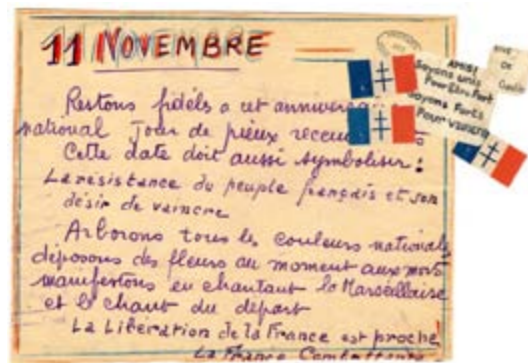 11 NOVEMBRE
Restons fidèls a cet
national Jour de pieux
Cette date doit aussi symboliser :
La résistance du peuple français et son
désir de vaincre
Arborons tous les couleurs nationale
déposons des fleurs au moment aux morts
manifestons en chantant la Marseillaise
et le chant du départ
La Libération de la France est proche
La France Combattante
AMIS!
Soyons unis
Pour être fort
Soyons forts
Pour VAINCRE
VIVE
DE
Gaulle